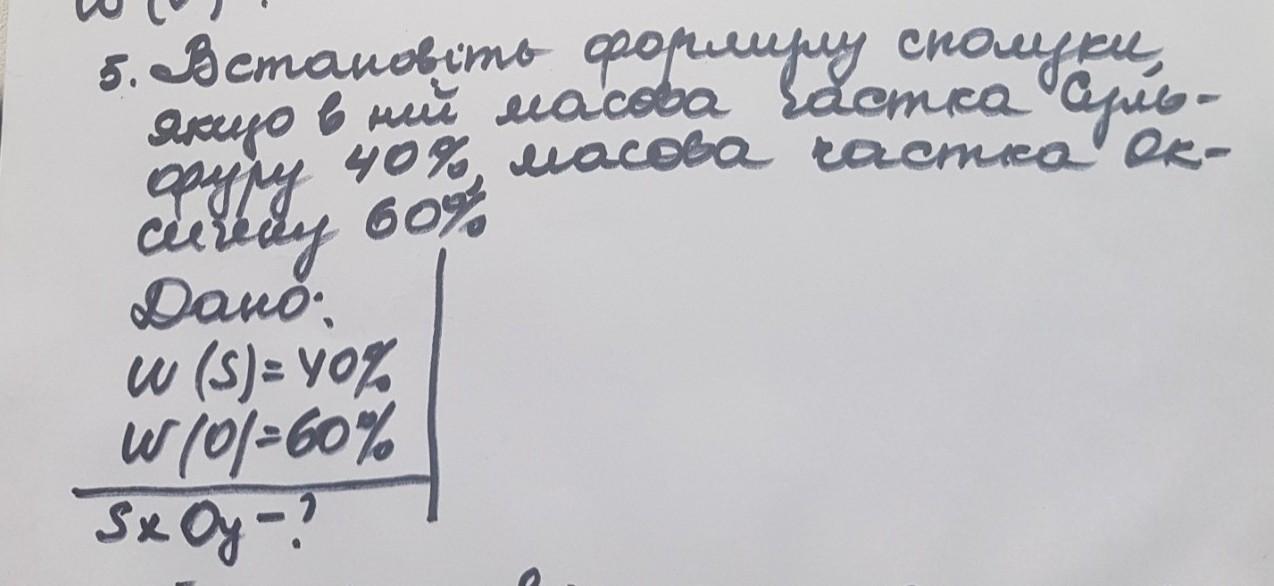 5. Встановіть формулу сполуки,
якщо в ній масова частка Суль-
фуру 40%, масова частка Ок-
сигену 60%
Дано:
W (S)=40%
W (O)=60%
SxOy-?